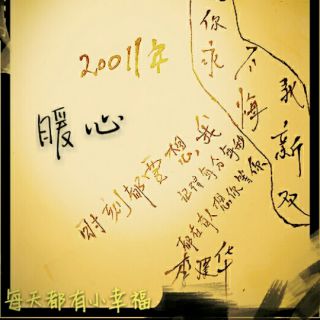 20011年
你永
不悔
我新双
暖心
时刻都要想我
记得每分每秒
都在有人想你等你
李建华
每天都有小幸福